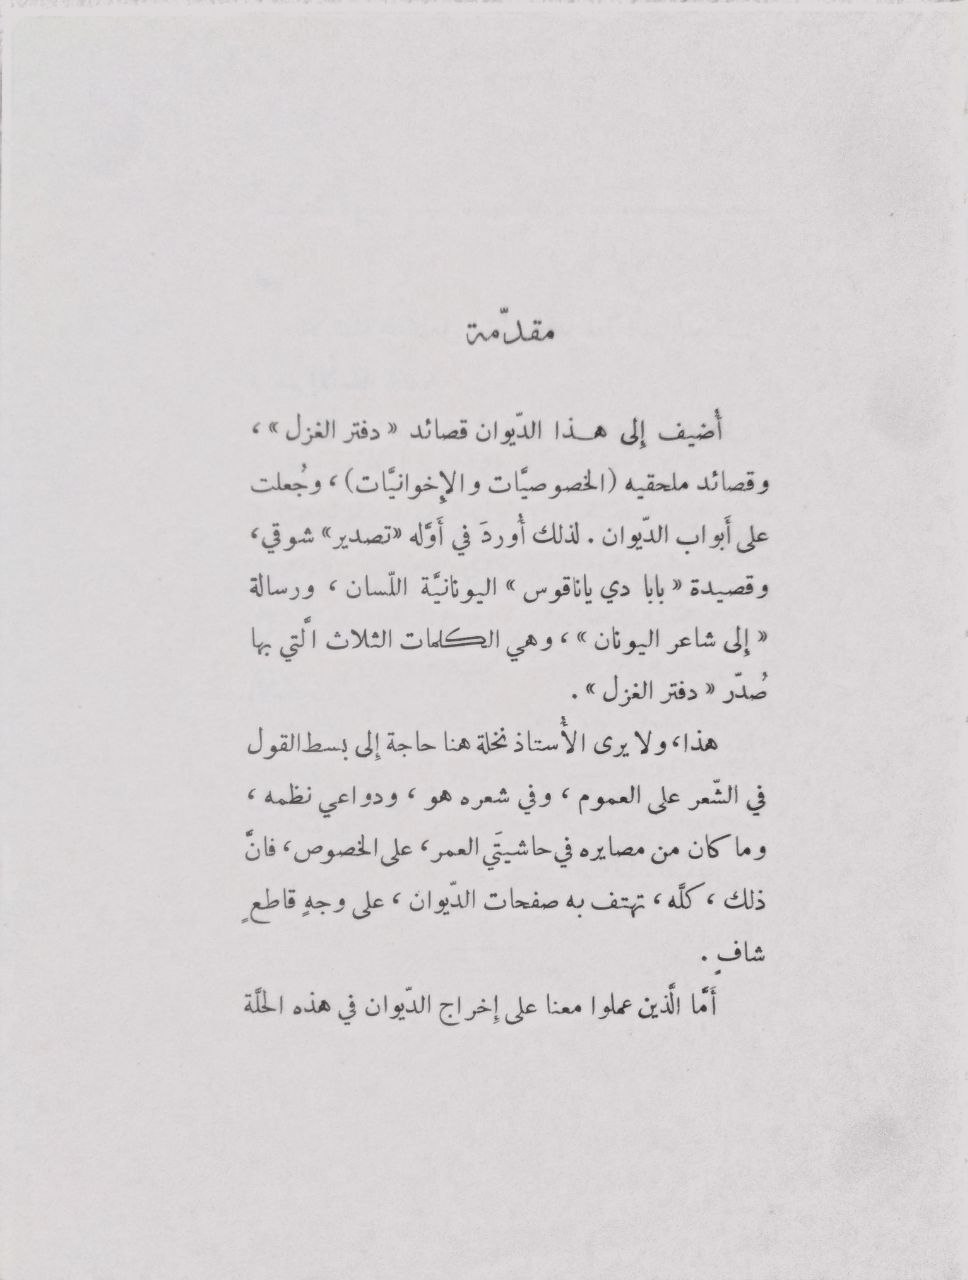 مقدّمة
أُضيف إِلى هـذا الدّيوان قصائد « دفتر الغزل » ،
وقصائد ملحقيه (الخصوصيَّات والإِخوانيَّات) ، وجُعلت
على أَبواب الدّيوان . لذلك أُوردَ في أَوَّله «تصدير» شوقي ،
وقصيدة « بابا دي ياناقوس » اليونانيَّة اللّسان ، ورسالة
« إِلى شاعر اليونان » ، وهي الكلمات الثلاث الَّتي بها
صُدّر « دفتر الغزل » .
هذا، ولا يرى الأُستاذ نخلة هنا حاجة إِلى بسط القول
في الشّعر على العموم ، وفي شعره هو ، ودواعي نظمه ،
وما كان من مصايره في حاشيتَي العمر ، على الخصوص ، فانَّ
ذلك ، كلَّه ، تهتف به صفحات الدّيوان ، على وجهٍ قاطعٍ
شافٍ .
أَمَّا الَّذين عملوا معنا على إِخراج الدّيوان في هذه الحلَّة